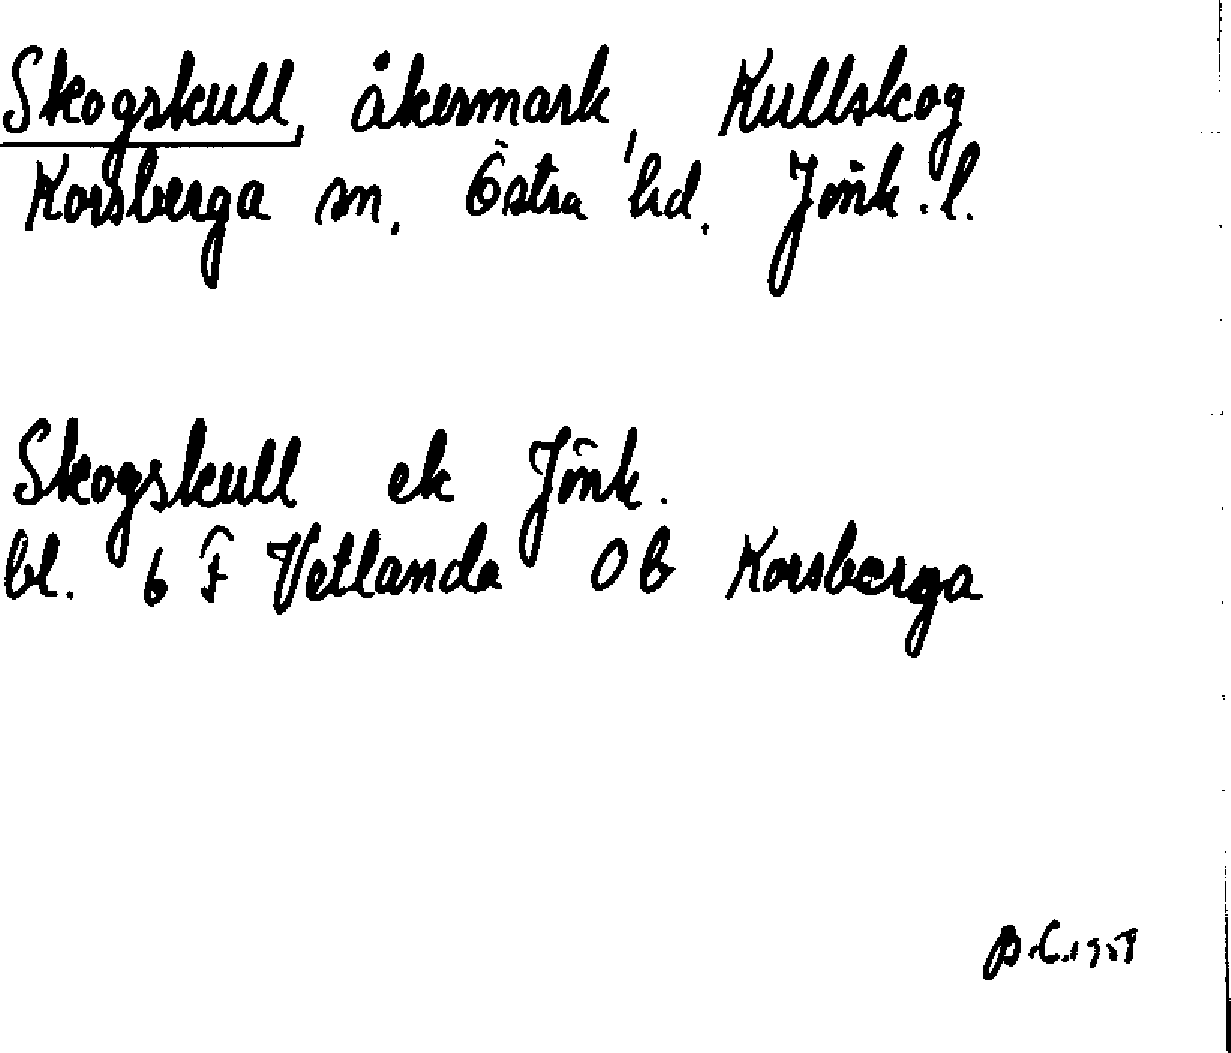 Skogskull, åkermark, Kullskog
Korsberga sn. Östra hd. Jönk. l.
Skogskull ek Jönk.
bl. 6 F Vetlanda 0 b Korsberga